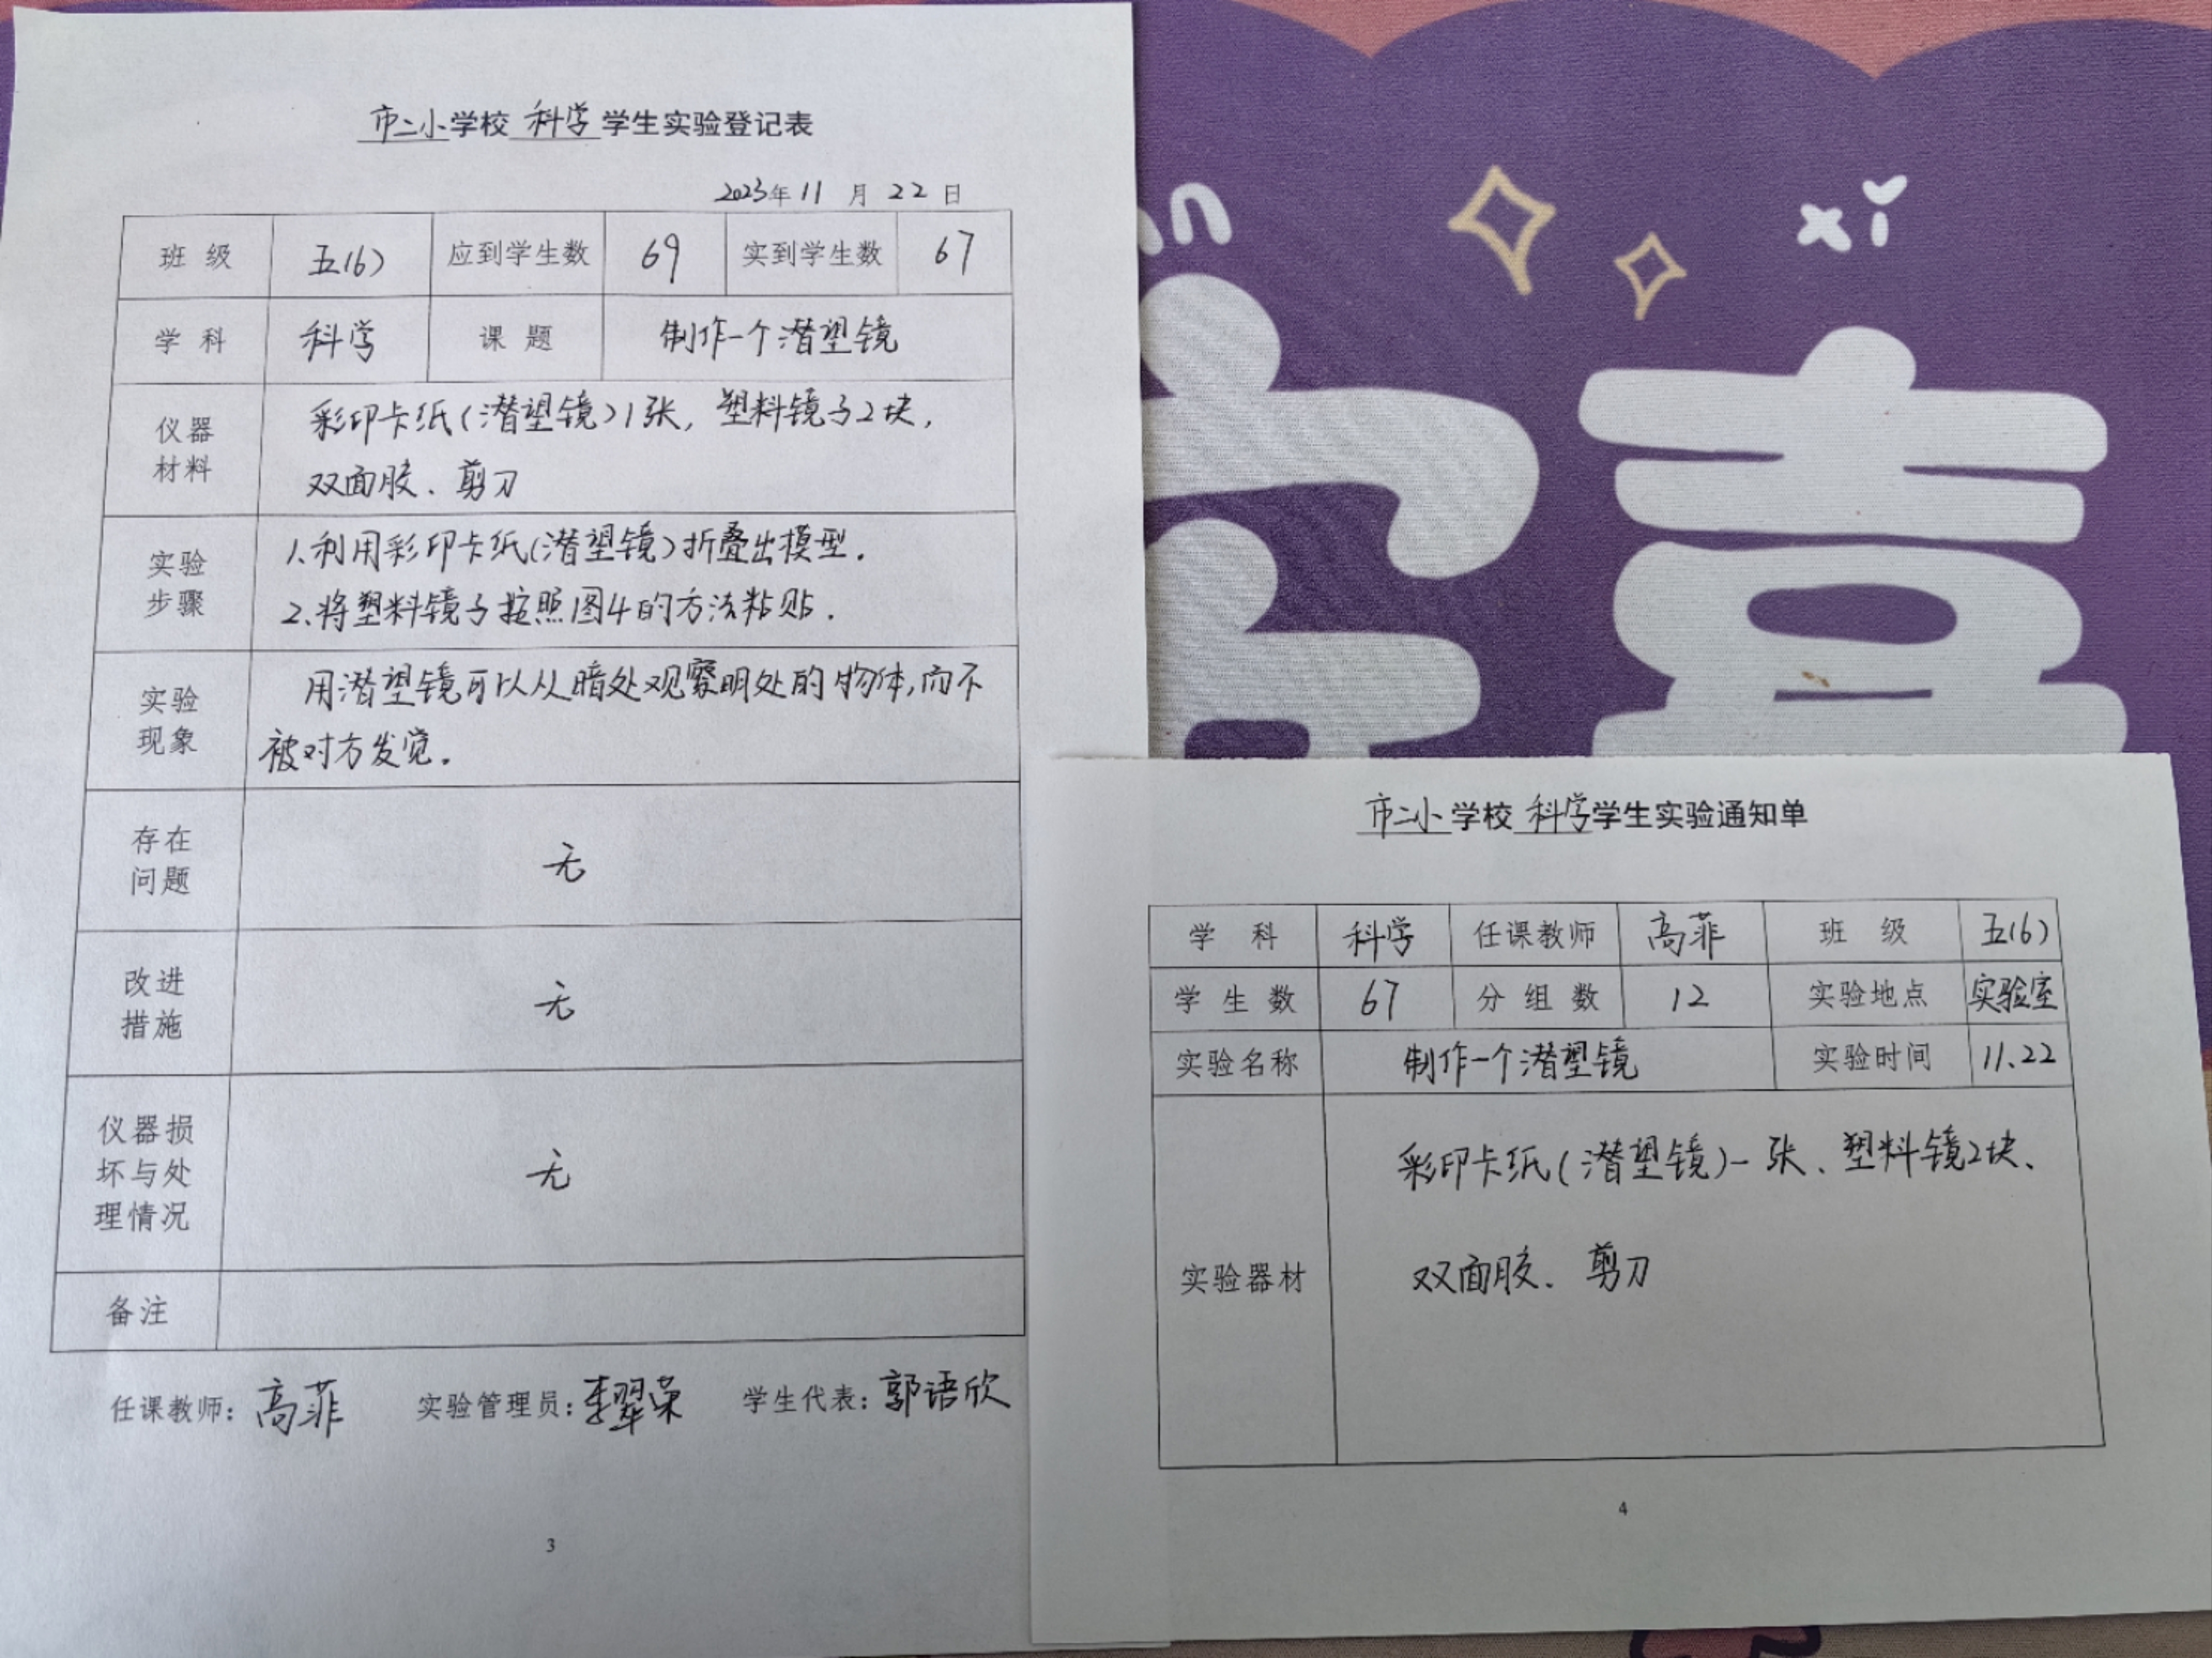 市二小学校 科学 学生实验登记表
2023年 11 月 22 日
班 级 五(6) 应到学生数 69 实到学生数 67
学 科 科学 课 题 制作一个潜望镜
仪器
材料
彩印卡纸(潜望镜)1张, 塑料镜子2块,
双面胶、剪刀
实验
步骤
1.利用彩印卡纸(潜望镜)折叠出模型.
2.将塑料镜子按照图4的方法粘贴.
实验
现象
用潜望镜可以从暗处观察明处的物体,而不
被对方发觉.
存在
问题
无
改进
措施
无
仪器损
坏与处
理情况
无
备注
任课教师: 高菲 实验管理员: 李翠荣 学生代表: 郭语欣
3
xi
喜
市二小学校 科学学生实验通知单
学 科 科学 任课教师 高菲 班 级 五(6)
学 生 数 67 分 组 数 12 实验地点 实验室
实验名称 制作一个潜望镜 实验时间 11.22
实验器材
彩印卡纸(潜望镜)一张、塑料镜2块、
双面胶、剪刀
4